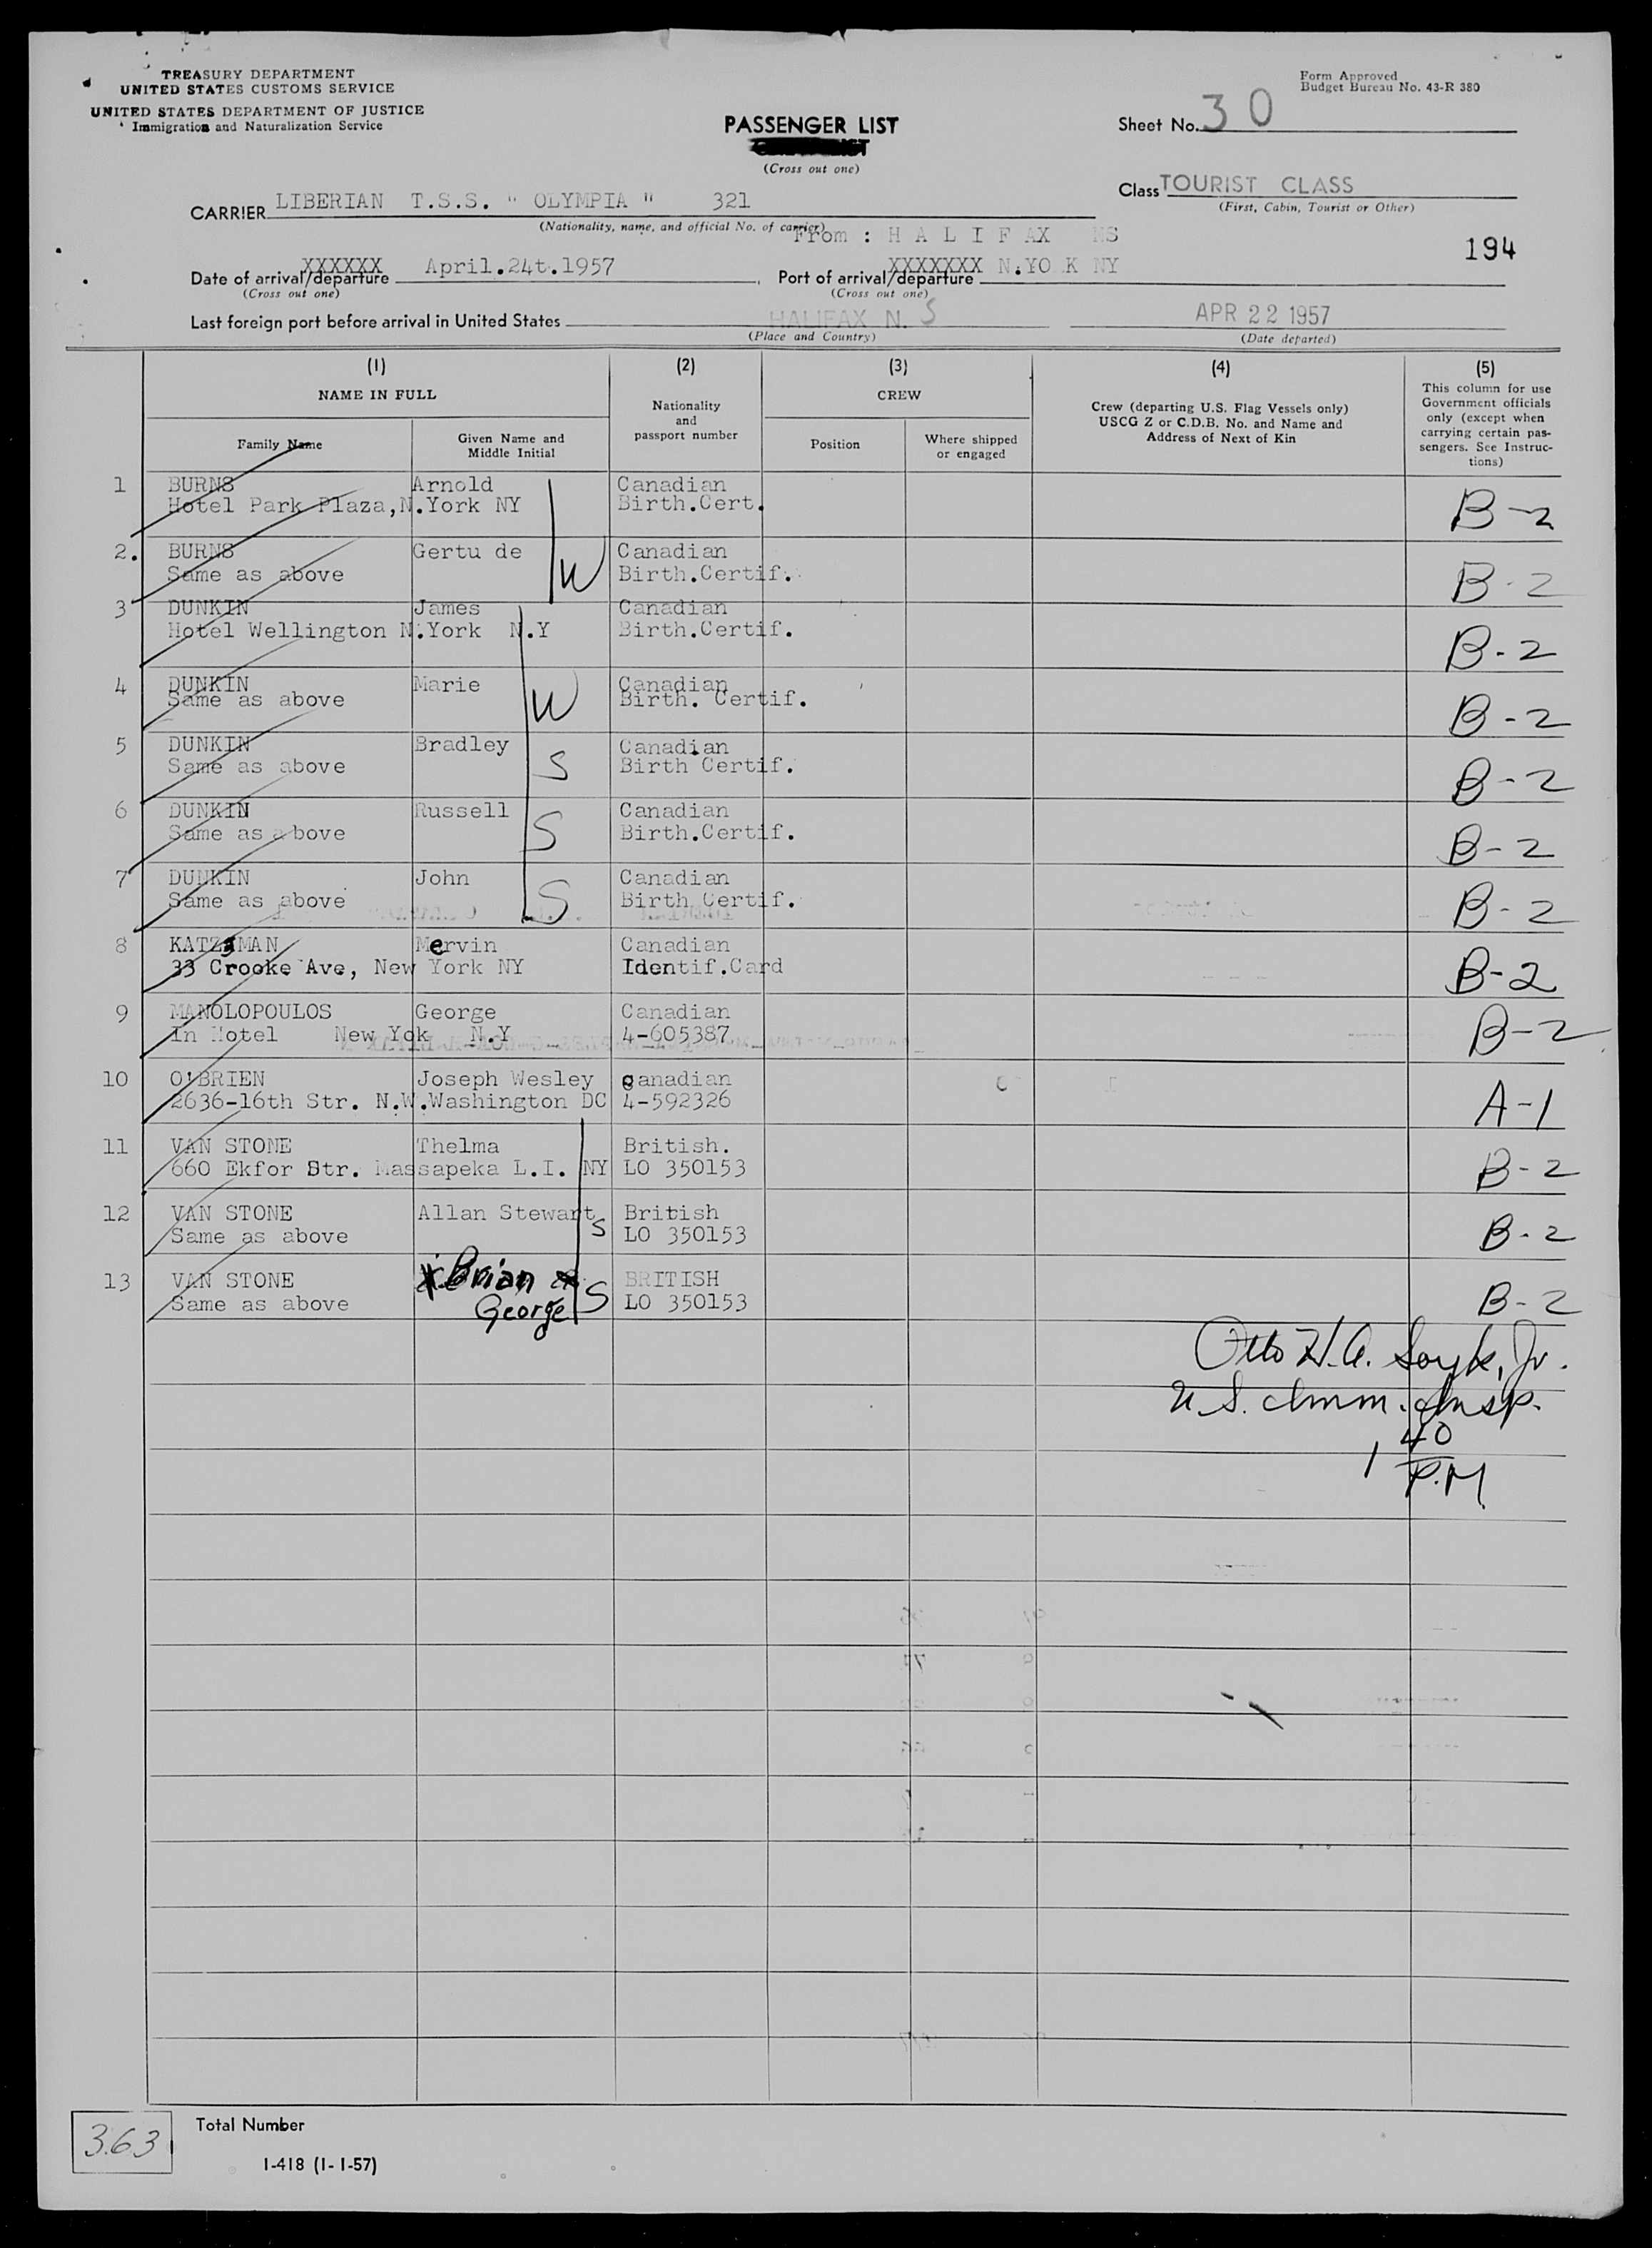 TREASURY DEPARTMENT
UNITED STATES CUSTOMS SERVICE
UNITED STATES DEPARTMENT OF JUSTICE
Immigration and Naturalization Service
Form Approved
Budget Bureau No. 43-R 380
PASSENGER LIST
(Cross out one)
Sheet No. 30
Class TOURIST CLASS
(First, Cabin, Tourist or Other)
CARRIER LIBERIAN T.S.S. " OLYMPIA " 321
(Nationality, name, and official No. of carrier)
From : H A L I F AX NS
194
Date of arrival/departure XXXXXX April.24t.1957
(Cross out one)
Port of arrival/departure XXXXXXX N.YO K NY
(Cross out one)
Last foreign port before arrival in United States HALIFAX N. S APR 22 1957
(Place and Country) (Date departed)
(1) (2) (3) (4) (5)
NAME IN FULL
Family Name
Given Name and Middle Initial
Nationality and passport number
CREW
Position
Where shipped or engaged
Crew (departing U.S. Flag Vessels only)
USCG Z or C.D.B. No. and Name and
Address of Next of Kin
This column for use
Government officials
only (except when
carrying certain pas-
sengers. See Instruc-
tions)
1 BURNS Arnold Canadian
Hotel Park Plaza,N.York NY Birth.Cert. B-2
2. BURNS Gertu de Canadian
Same as above W Birth.Certif. B-2
3 DUNKIN James Canadian
Hotel Wellington N.York N.Y Birth.Certif. B-2
4 DUNKIN Marie Canadian
Same as above W Birth. Certif. B-2
5 DUNKIN Bradley Canadian
Same as above S Birth Certif. B-2
6 DUNKIN Russell Canadian
Same as above S Birth.Certif. B-2
7 DUNKIN John Canadian
Same as above S Birth Certif. B-2
8 KATZMAN Mervin Canadian
33 Crooke Ave, New York NY Identif.Card B-2
9 MANOLOPOULOS George Canadian
In Hotel New Yok N.Y 4-605387 B-2
10 O'BRIEN Joseph Wesley Canadian
2636-16th Str. N.W.Washington DC 4-592326 A-1
11 VAN STONE Thelma British.
660 Ekfor Str. Massapeka L.I. NY LO 350153 B-2
12 VAN STONE Allan Stewart British
Same as above S LO 350153 B-2
13 VAN STONE Brian BRITISH
Same as above George S LO 350153 B-2
Otto H.A. Jr.
U.S. Imm. Insp.
1 40
P.M
363 Total Number
I-418 (1-1-57)